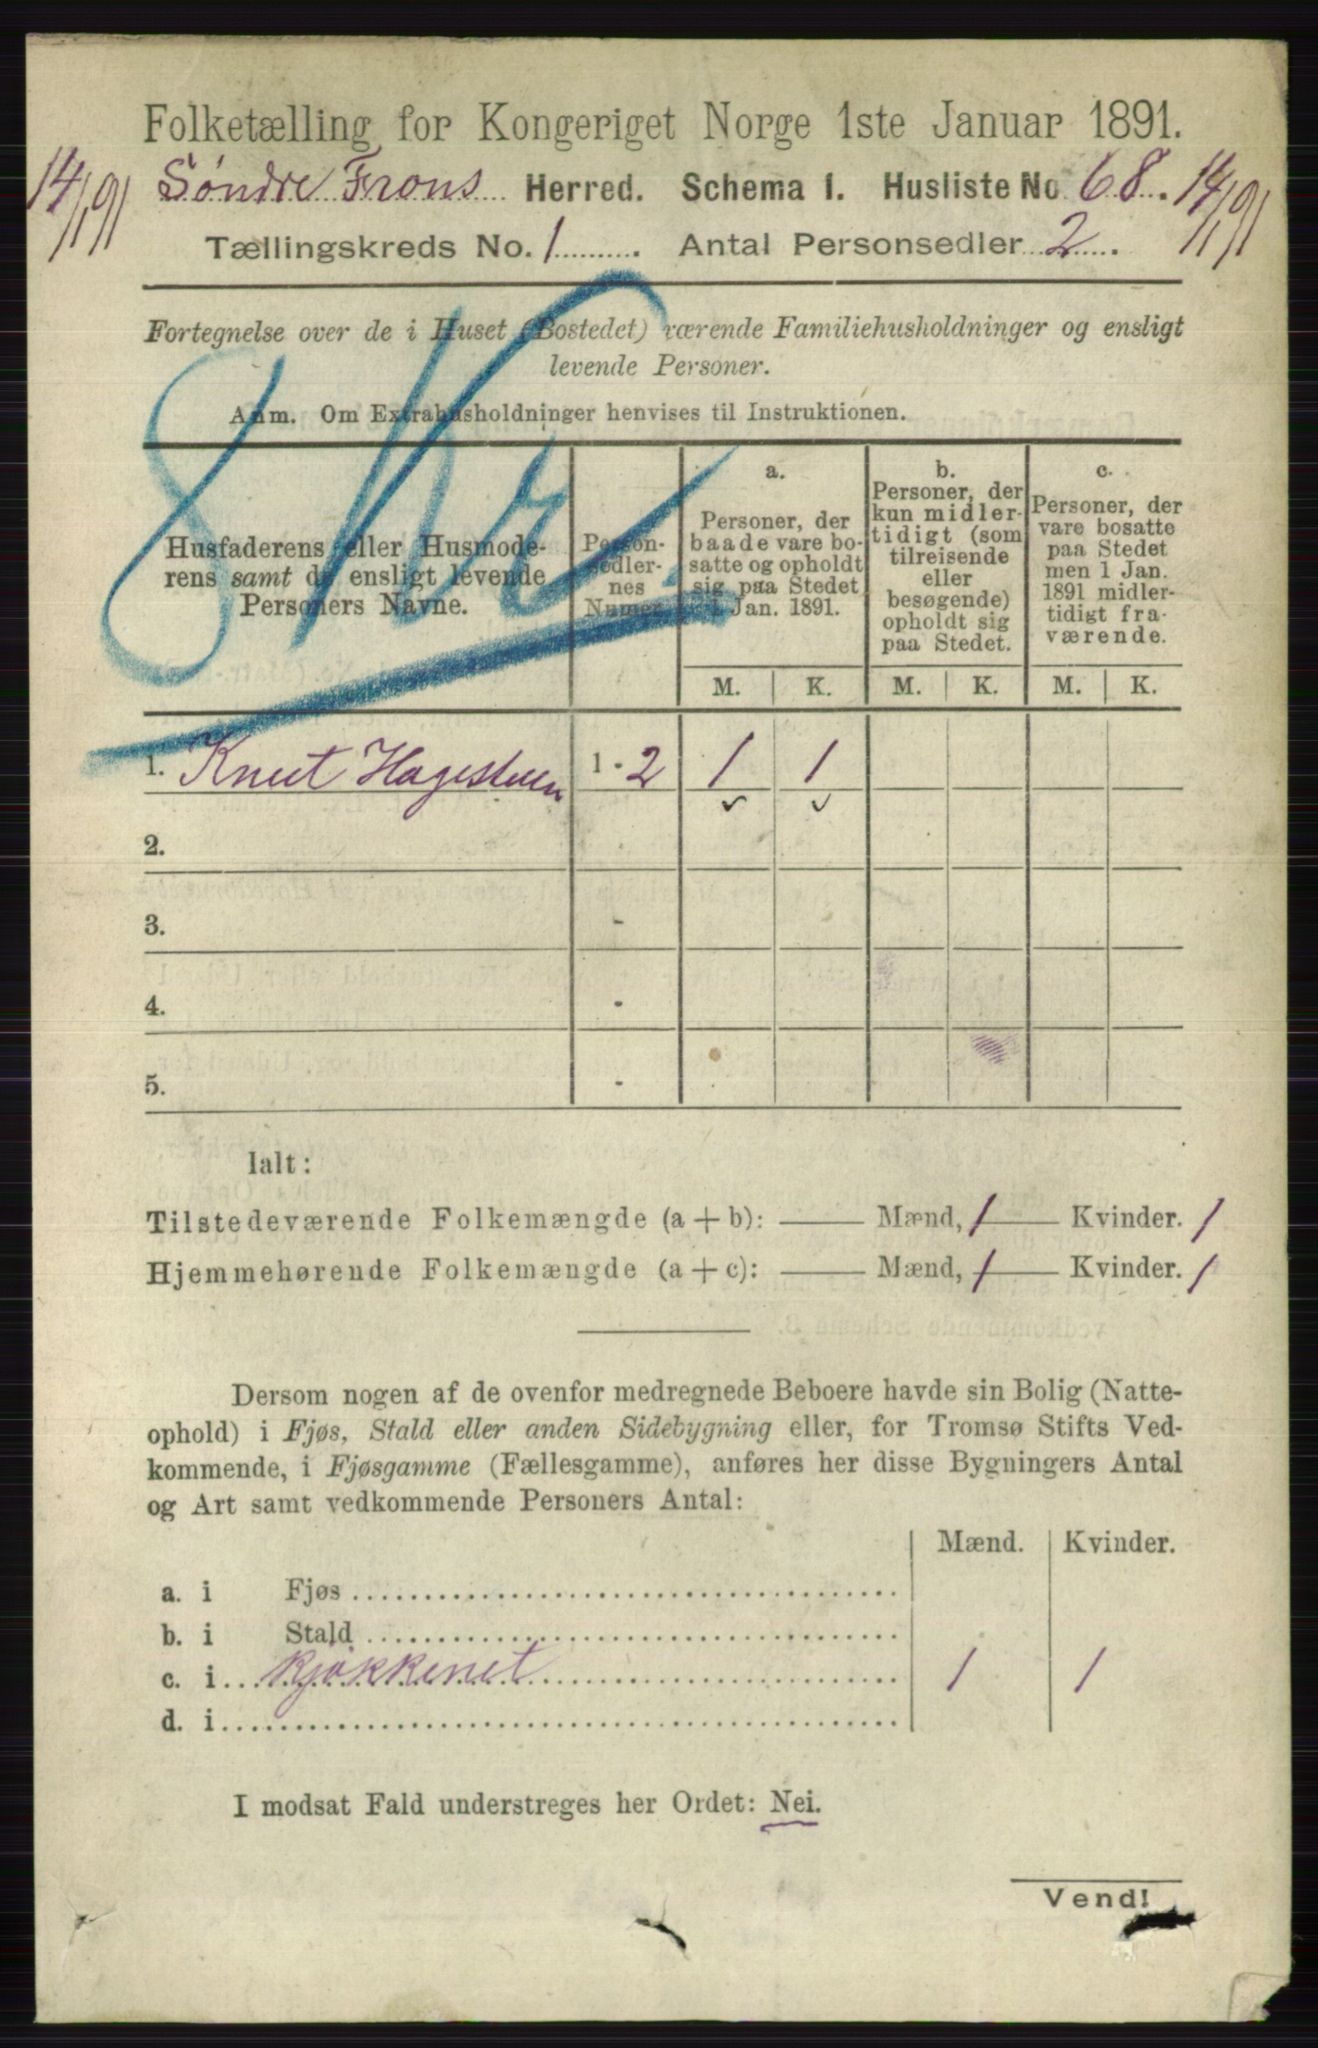 Folketælling for Kongeriget Norge 1ste Januar 1891.
14/1 91 Søndre Frons Herred. Schema 1. Husliste No 68. 14/1 91
Tællingskreds No. 1. Antal Personsedler 2.
Fortegnelse over de i Huset (Bostedet) værende Familiehusholdninger og ensligt
levende Personer.
Anm. Om Extrahusholdninger henvises til Instruktionen.
Husfaderens eller Husmode-
rens samt de ensligt levende
Personers Navne.
Person-
sedler-
nes
Numer.
a.
Personer, der
baade vare bo-
satte og opholdt
sig paa Stedet
1 Jan. 1891.
b.
Personer, der
kun midler-
tidigt (som
tilreisende
eller
besøgende)
opholdt sig
paa Stedet.
c.
Personer, der
vare bosatte
paa Stedet
men 1 Jan.
1891 midler-
tidigt fra-
værende.
M. K. M. K. M. K.
1. Knut Hagestuen 1 - 2 1 1
2.
3. -
4. -
5. -
Ialt:
Tilstedeværende Folkemængde (a + b): Mænd, 1 Kvinder. 1
Hjemmehørende Folkemængde (a + c): Mænd, 1 Kvinder. 1
Dersom nogen af de ovenfor medregnede Beboere havde sin Bolig (Natte-
ophold) i Fjøs, Stald eller anden Sidebygning eller, for Tromsø Stifts Ved-
kommende, i Fjøsgamme (Fællesgamme), anføres her disse Bygningers Antal
og Art samt vedkommende Personers Antal:
Mænd. Kvinder.
a. i Fjøs
b. i Stald
c. i Kjøkkenet 1 1
d. i
I modsat Fald understreges her Ordet: Nei.
Vend!